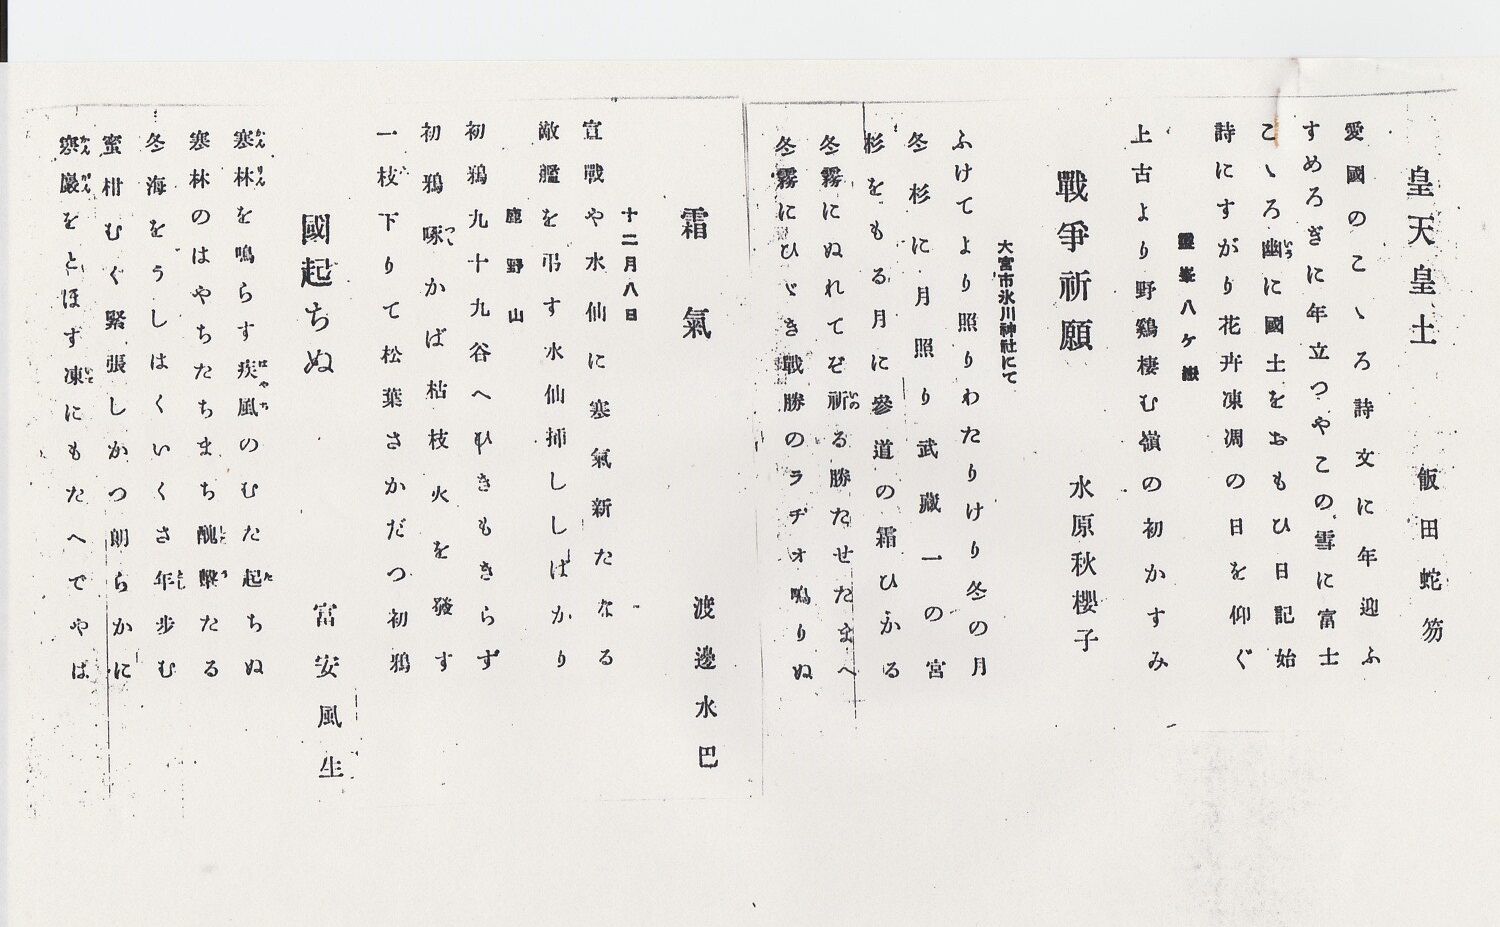 皇天皇土
飯田蛇笏
愛國のこゝろ詩文に年迎ふ
すめろぎに年立つやこの雪に富士
こゝろ幽に國土をおもひ日記始
詩にすがり花卉凍凋の日を仰ぐ
靈峯八ケ嶽
上古より野鷄棲む嶺の初かすみ
戰爭祈願
水原秋櫻子
大宮市氷川神社にて
ふけてより照りわたりけり冬の月
冬杉に月照り武藏一の宮
杉をもる月に參道の霜ひかる
冬霧にぬれてぞ祈る勝たせたまへ
冬霧にひゞき戰勝のラヂオ鳴りぬ
霜氣
渡邊水巴
十二月八日
宣戰や水仙に寒氣新たなる
敵艦を弔す水仙挿ししばかり
鹿野山
初鴉九十九谷へひきもきらず
初鴉啄かば枯枝火を發す
一枝下りて松葉さかだつ初鴉
國起ちぬ
富安風生
寒林を鳴らす疾風のむた起ちぬ
寒林のはやちたちまち醜擊たる
冬海をうしはくいくさ年歩む
蜜柑むぐ緊張しかつ朗らかに
寒巖をとほず凍にもたへでやば